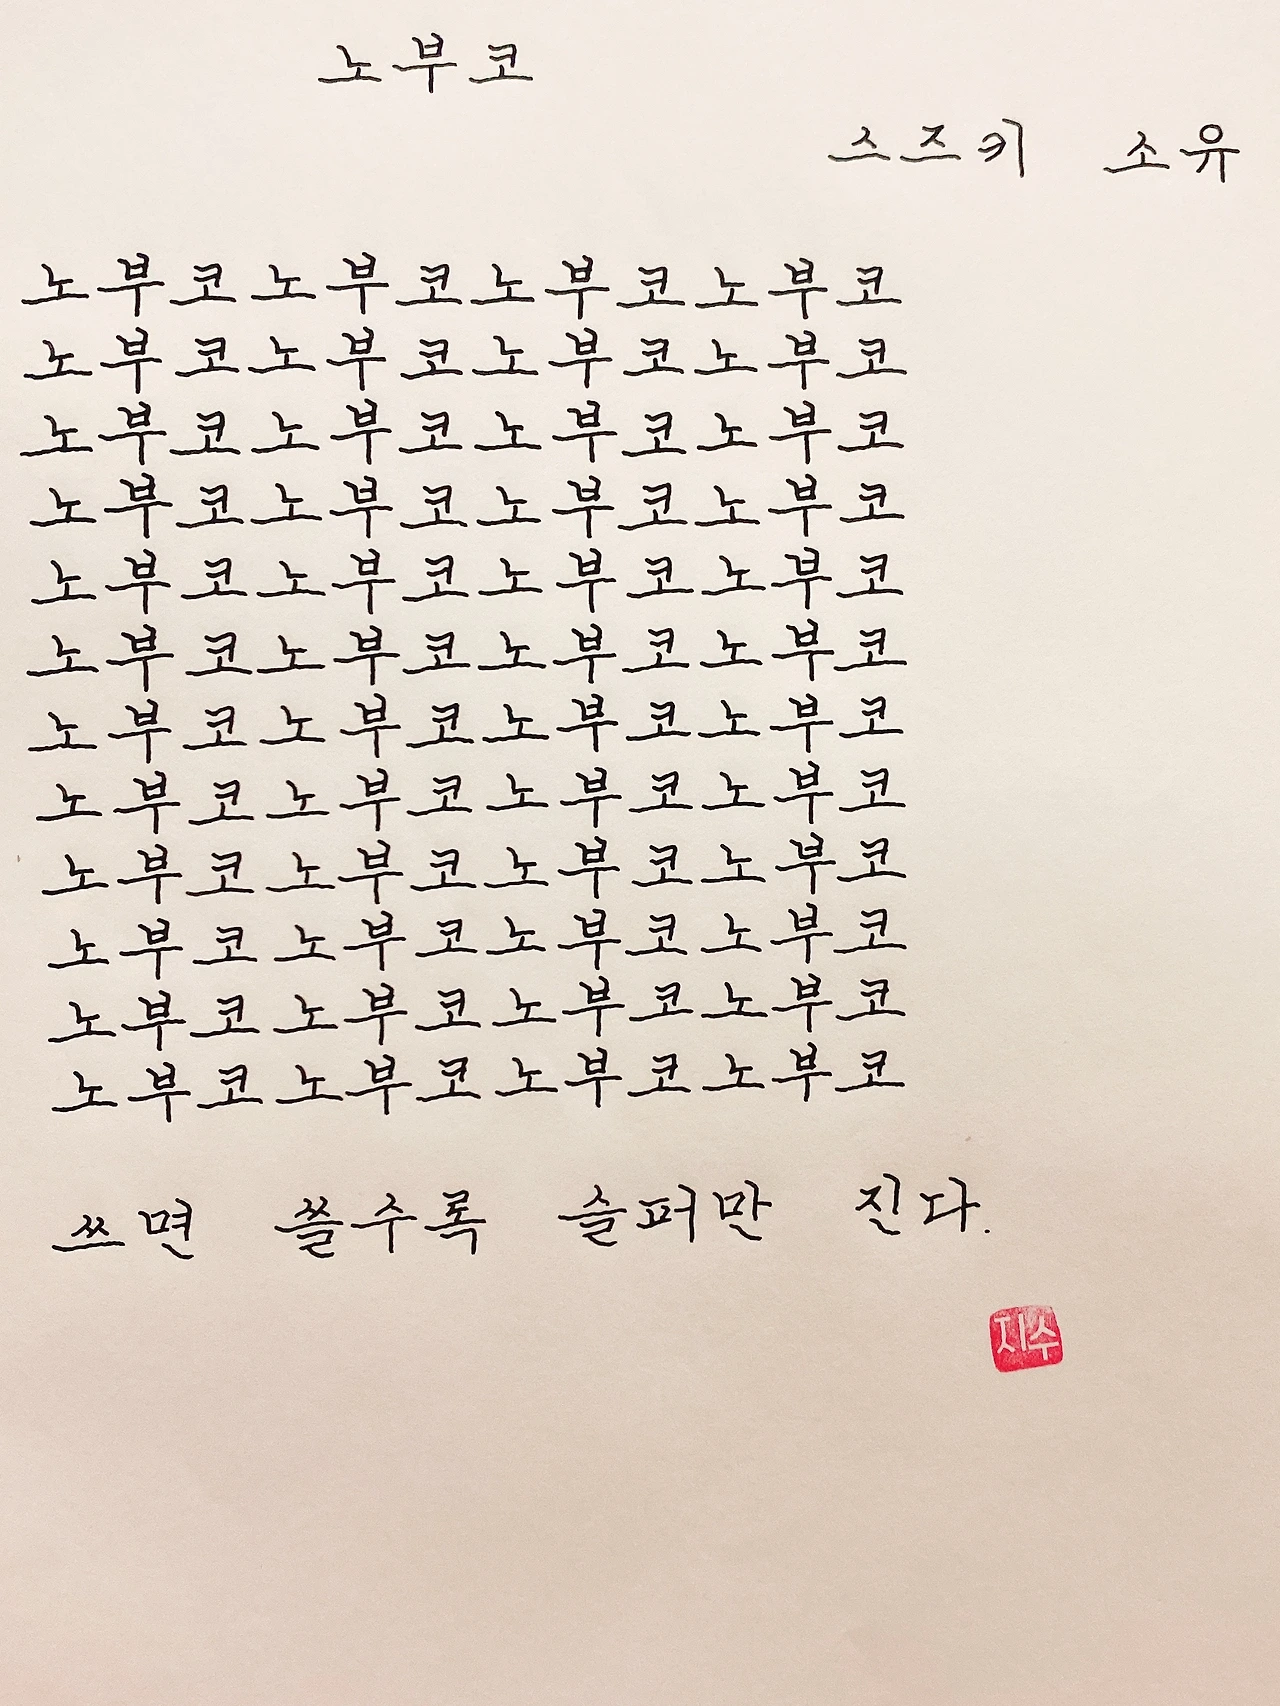 노부코
스즈키 소유
노부코노부코노부코노부코
노부코노부코노부코노부코
노부코노부코노부코노부코
노부코노부코노부코노부코
노부코노부코노부코노부코
노부코노부코노부코노부코
노부코노부코노부코노부코
노부코노부코노부코노부코
노부코노부코노부코노부코
노부코노부코노부코노부코
노부코노부코노부코노부코
노부코노부코노부코노부코
쓰면 쓸수록 슬퍼만 진다.
지수